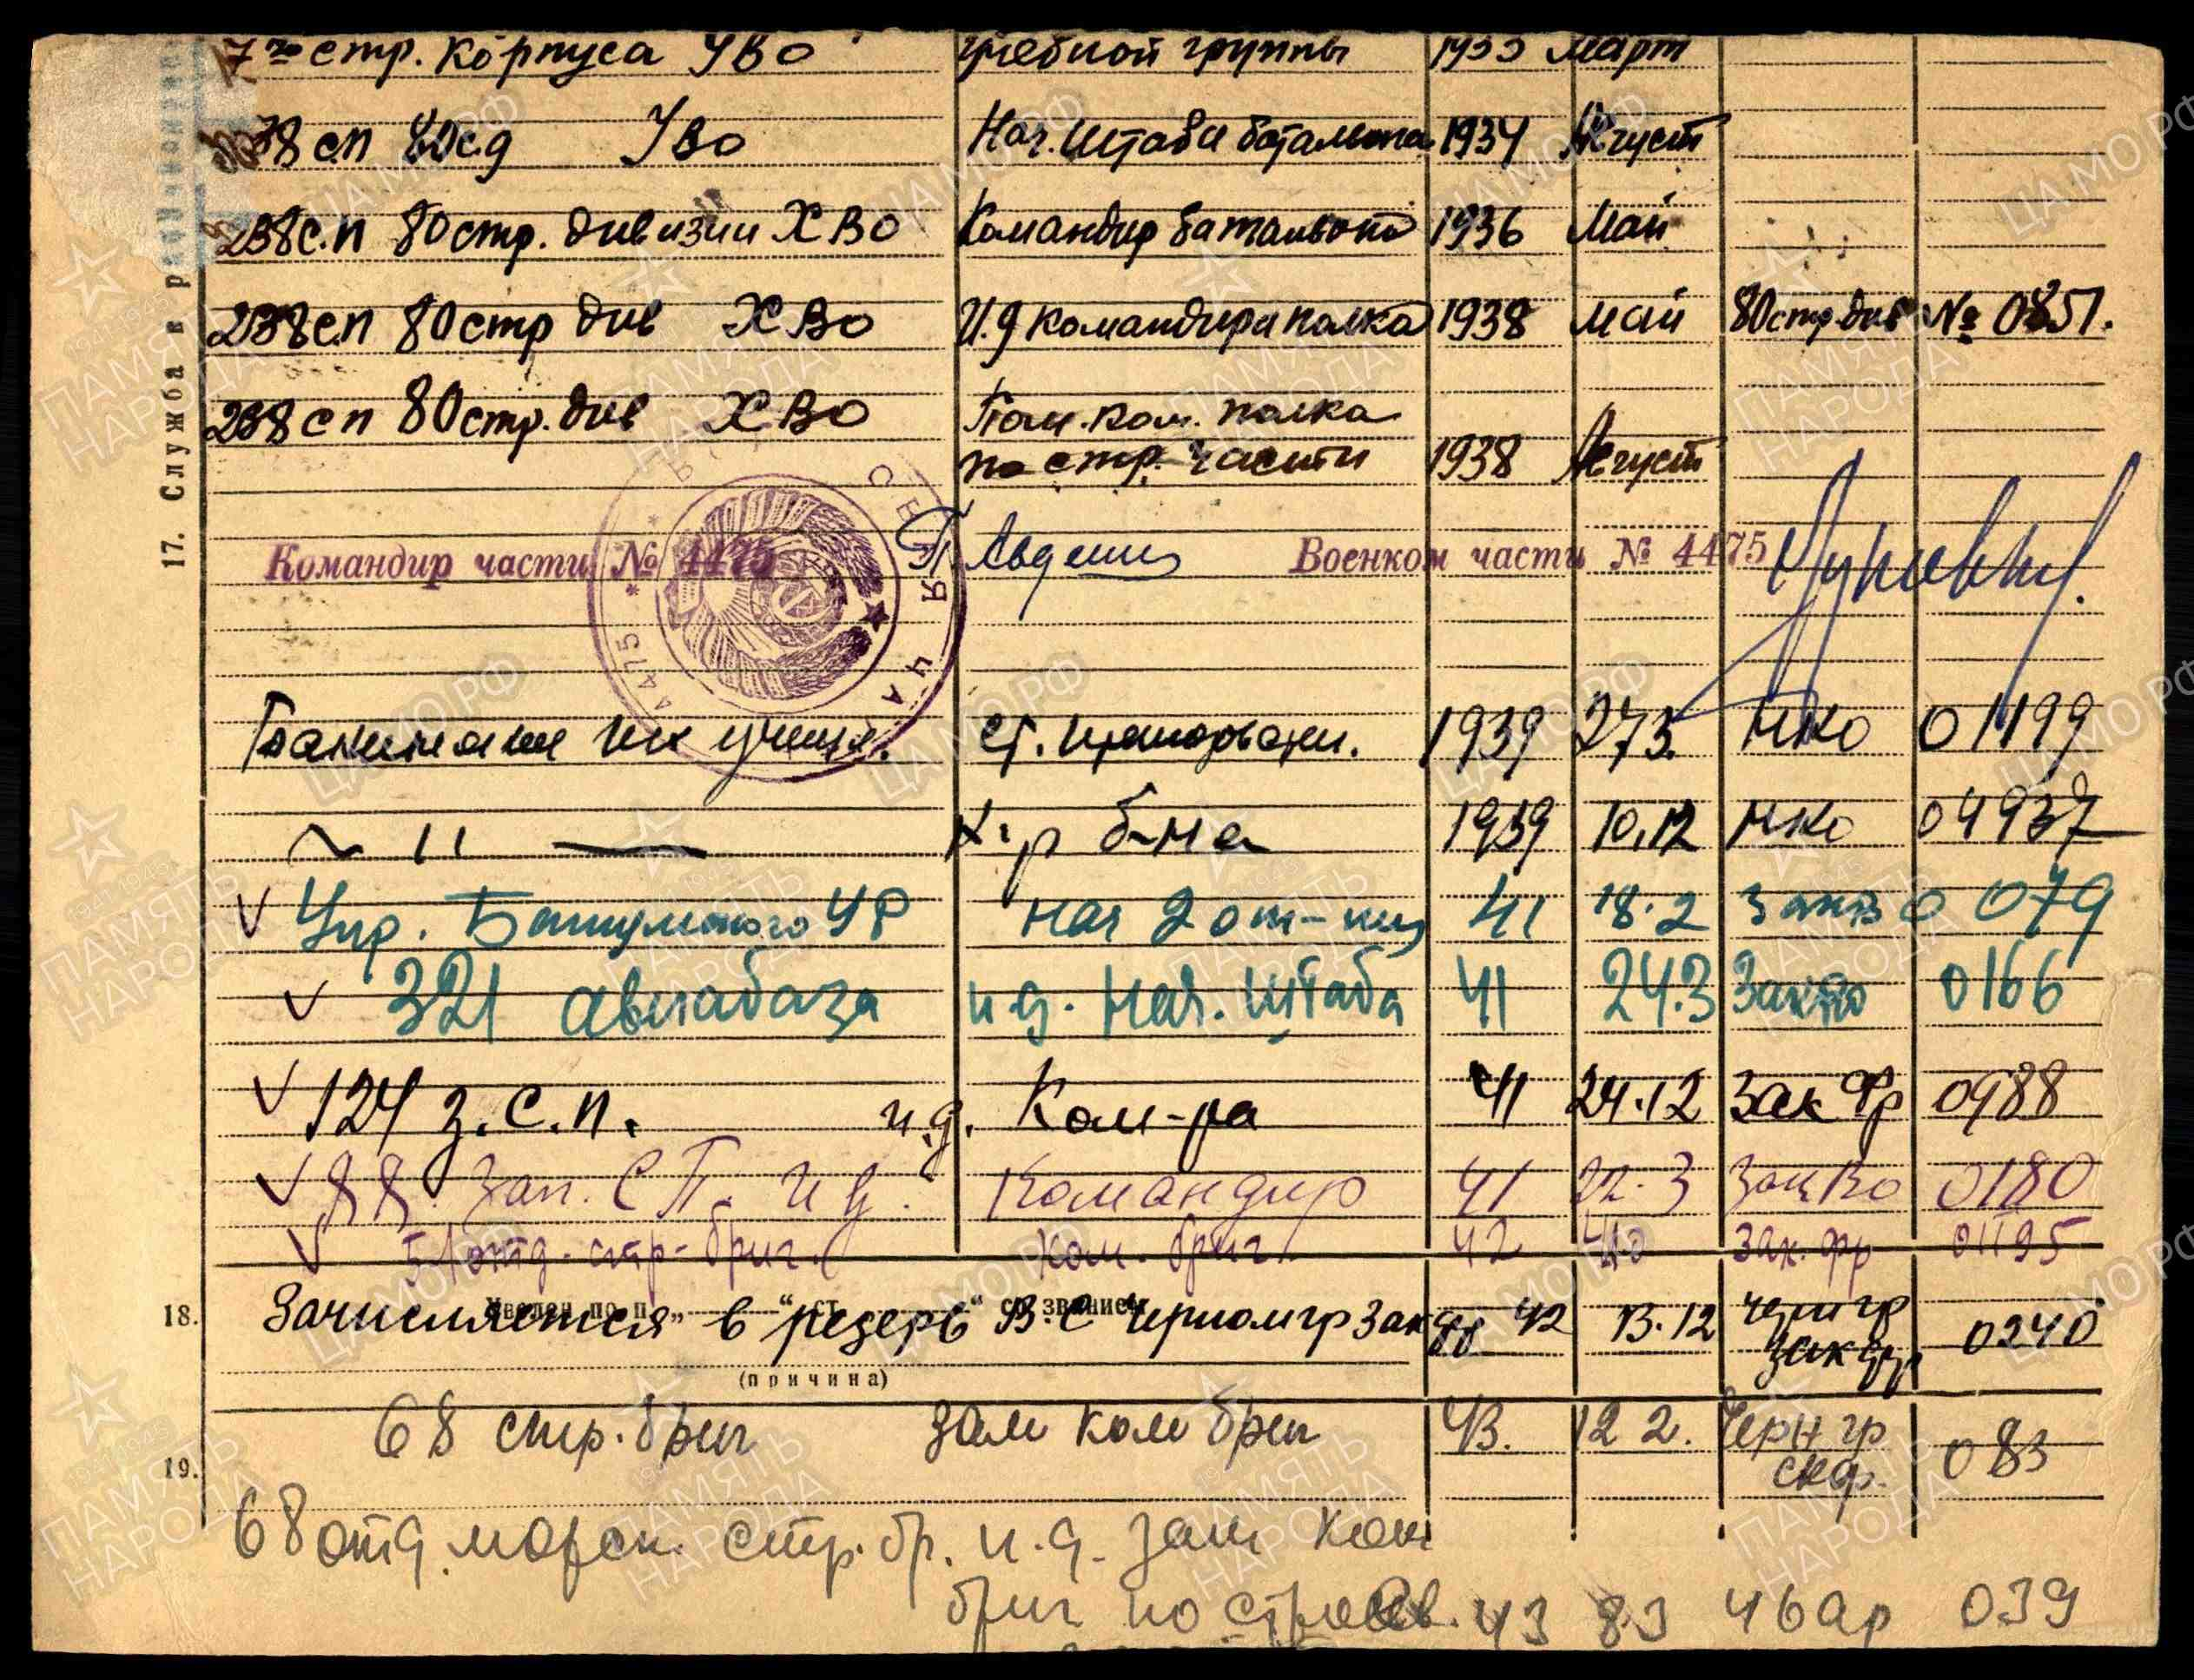 7го стр. корпуса УВО учебной группы 1933 март
238 сп 80 сд УВО Нач. штаба батальона 1934 Август
238 с.п 80 стр. дивизии ХВО Командир батальона 1936 Май
238 с.п 80 стр див ХВО И.д командира полка 1938 май 80 стр. див № 0851.
238 сп 80 стр. див ХВО Пом. ком. полка
по стр. части 1938 Август
Командир части № 4475 Военком части № 4475
17. Служба в
4475
Бакинское пех училищ. ст. 1939 27.3. НКО 01199
~ 11 — к-р б-на 1939 10.12 НКО 04937
Упр. Батумского УР нач 2 от-ния 41 18.2 ЗакВО 079
321 авиабаза и д. нач. штаба 41 24.3 ЗакВО 0166
124 з.с.п. и.д. Ком-ра 41 24.12 Зак Фр 0988
Зап. СП. и д. Командир 41 22.3 ЗакВо 0180
51 отд-стр-бриг. ком. бриг. 42 Зак. фр 01195
18. Зачисляется в резерв В.С Черноморгр Закфр 42 13.12 Черн гр
Закфр 0240
(причина)
68 стр. бриг зам ком бриг 43. 12 2. Черн гр
скф. 083
19.
68 отд. морск. стр. бр. и.д. зам ком
бриг по 43 8.3 46 ар 039